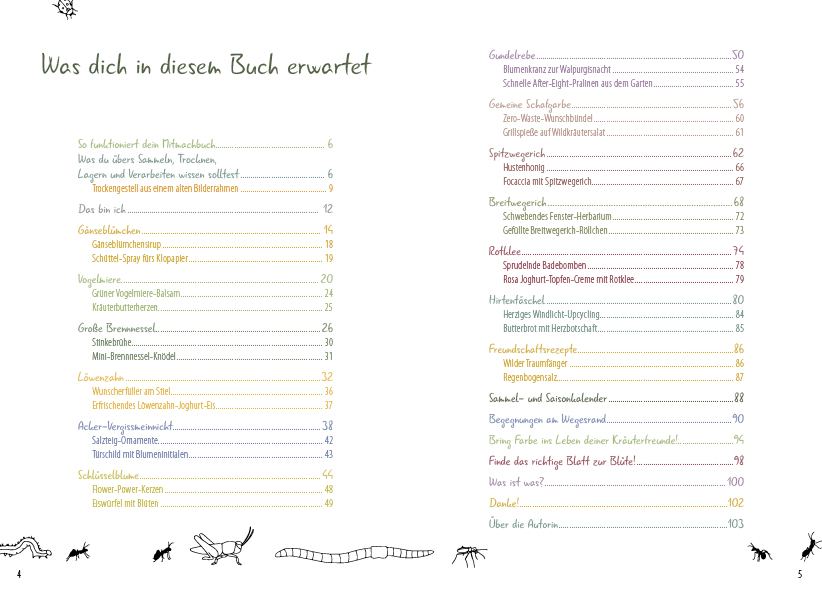 Was dich in diesem Buch erwartet
So funktioniert dein Mitmachbuch 6
Was du übers Sammeln, Trocknen,
Lagern und Verarbeiten wissen solltest 6
Trockengestell aus einem alten Bilderrahmen 9
Das bin ich 12
Gänseblümchen 14
Gänseblümchensirup 18
Schüttel-Spray fürs Klopapier 19
Vogelmiere 20
Grüner Vogelmiere-Balsam 24
Kräuterbutterherzen 25
Große Brennnessel 26
Stinkebrühe 30
Mini-Brennnessel-Knödel 31
Löwenzahn 32
Wunscherfüller am Stiel 36
Erfrischendes Löwenzahn-Joghurt-Eis 37
Acker-Vergissmeinnicht 38
Salzteig-Ornamente 42
Türschild mit Blumeninitialen 43
Schlüsselblume 44
Flower-Power-Kerzen 48
Eiswürfel mit Blüten 49
4
Gundelrebe 50
Blumenkranz zur Walpurgisnacht 54
Schnelle After-Eight-Pralinen aus dem Garten 55
Gemeine Schafgarbe 56
Zero-Waste-Wunschbündel 60
Grillspieße auf Wildkräutersalat 61
Spitzwegerich 62
Hustenhonig 66
Focaccia mit Spitzwegerich 67
Breitwegerich 68
Schwebendes Fenster-Herbarium 72
Gefüllte Breitwegerich-Röllchen 73
Rotklee 74
Sprudelnde Badebomben 78
Rosa Joghurt-Topfen-Creme mit Rotklee 79
Hirtentäschel 80
Herziges Windlicht-Upcycling 84
Butterbrot mit Herzbotschaft 85
Freundschaftsrezepte 86
Wilder Traumfänger 86
Regenbogensalz 87
Sammel- und Saisonkalender 88
Begegnungen am Wegesrand 90
Bring Farbe ins Leben deiner Kräuterfreunde! 94
Finde das richtige Blatt zur Blüte! 98
Was ist was? 100
Danke! 102
Über die Autorin 103
5